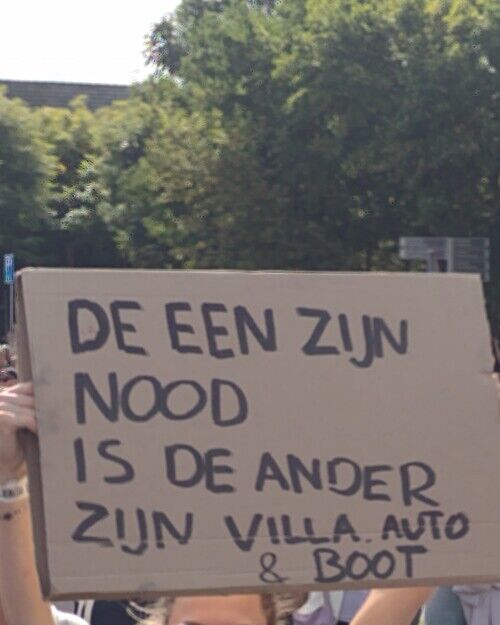 DE EEN ZIJN
NOOD
IS DE ANDER
ZIJN VILLA. AUTO
& BOOT